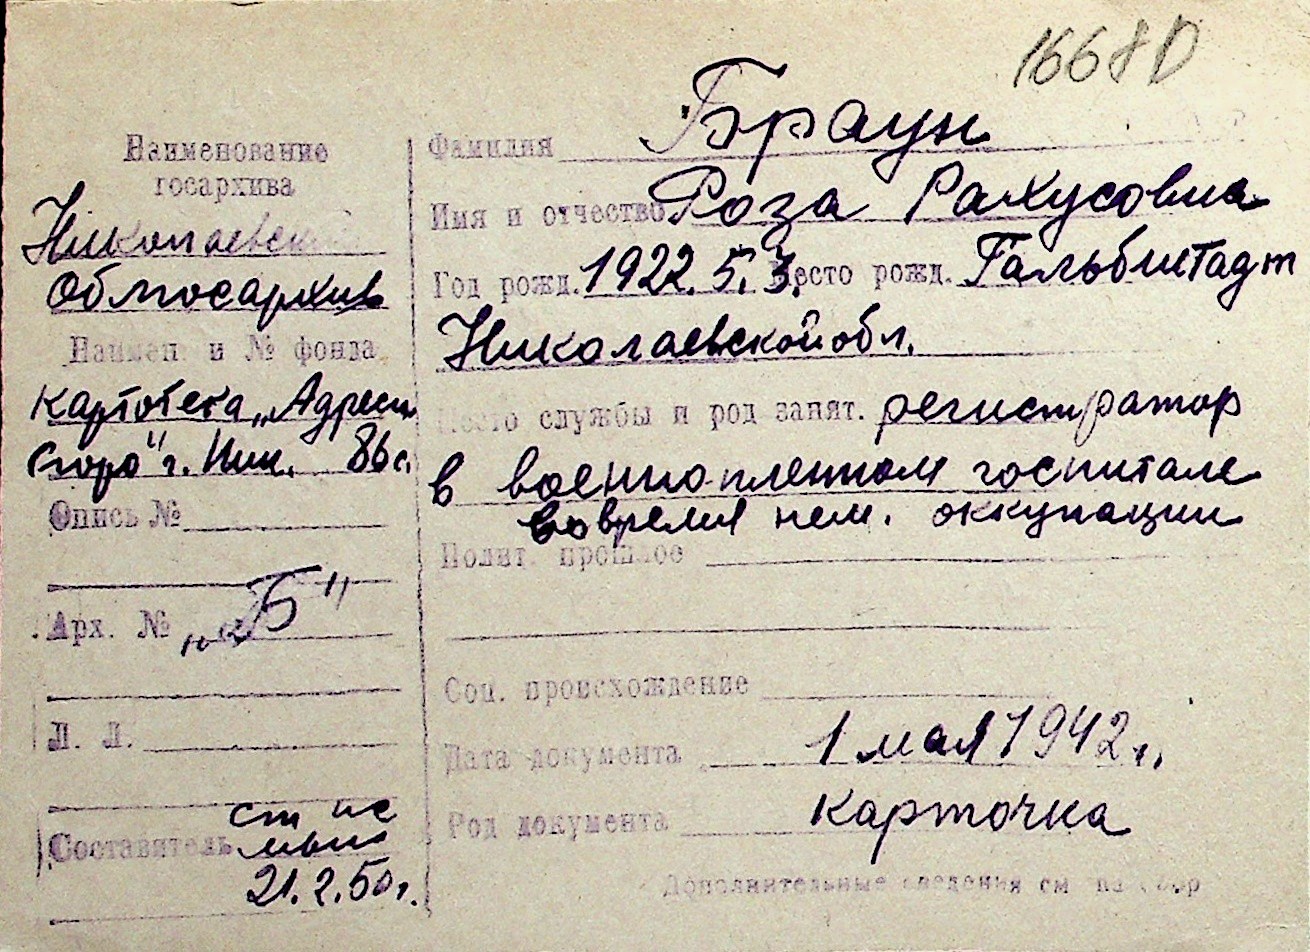 1668D
Наименование
госархива
Николаевский
Облгосархив
Наимен и № фонда
картотека „Адресн
бюро" г. Ник.
Опись №
Арх. № „Б"
Л. Л.
Составитель
21.2.50г.
Фамилия Браун
Имя и отчество Роза
Год рожд. 1922. 5. 3. Место рожд. Гальбштадт
Николаевской обл.
Место службы и род занят. регистратор
в военнопленном госпитале
во время нем. оккупации
Полит. прошлое
Соц. происхождение
Дата документа 1 мая 1942 г.
Род документа карточка
Дополнительные сведения см на обор